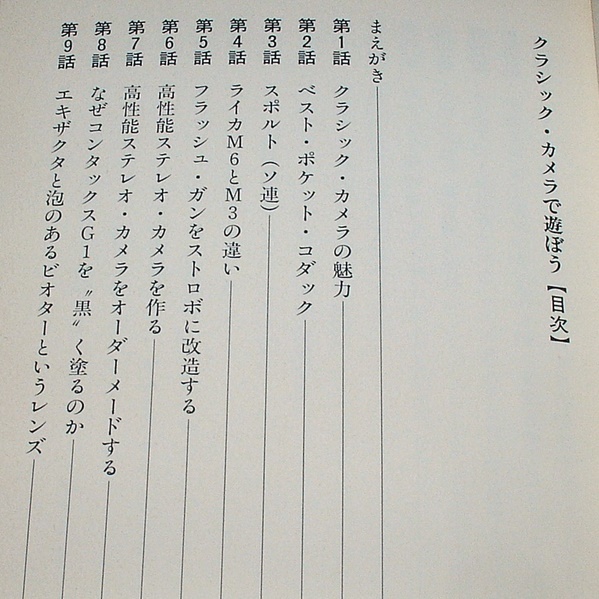 クラシック・カメラで遊ぼう【目次】
まえがき
第1話 クラシック・カメラの魅力
第2話 ベスト・ポケット・コダック
第3話 スポルト(ソ連)
第4話 ライカM6とM3の違い
第5話 フラッシュ・ガンをストロボに改造する
第6話 高性能ステレオ・カメラを作る
第7話 高性能ステレオ・カメラをオーダーメードする
第8話 なぜコンタックスG1を〝黒〟く塗るのか
第9話 エキザクタと泡のあるビオターというレンズ